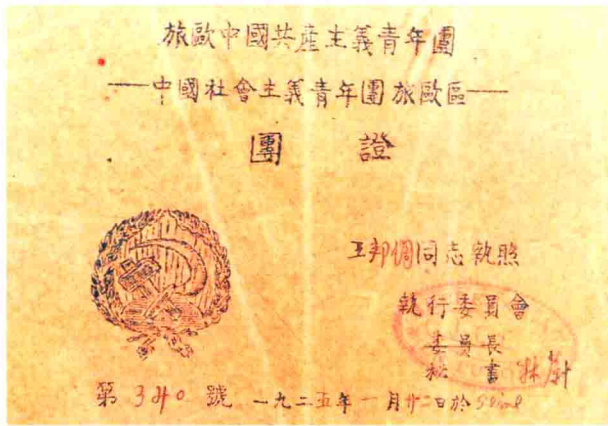 旅歐中國共產主義青年團
——中國社會主義青年團旅歐區——
團 證
王邦倜同志執照
執行委員會
委員長
秘 書 林蔚
第 340 號 一九二五年 一 月廿二日於